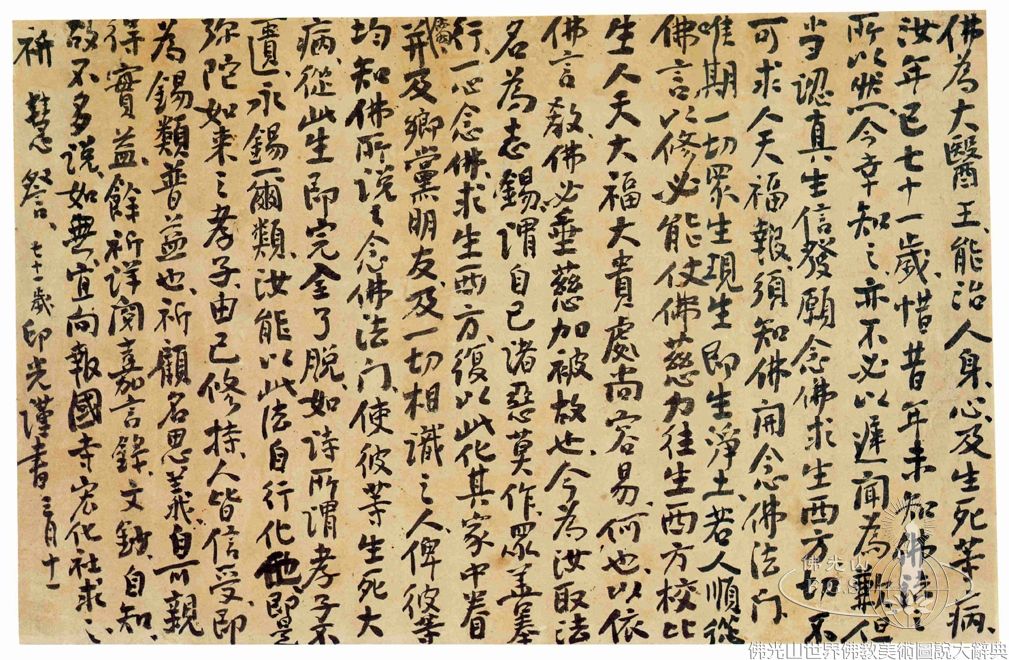 佛為大醫王、能治人身、心、及生死等病、
汝年已七十一歲、惜昔年未知佛法之
所以然、今幸知之、亦不必以遲聞為歉、但
当認真生信發願念佛求生西方、切不
可求人天福報、須知佛開念佛法門、
唯期一切眾生現生即生淨土、若人順從
佛言以修、必能仗佛慈力往生西方、校比
生人天大福大貴處尚容易、何也、以依
佛言教、佛必垂慈加被故也、今為汝取法
名為志錫、謂自己諸惡莫作、眾善奉
行、一心念佛、求生西方、復以此化其家中眷
屬、并及鄉黨朋友、及一切相識之人、俾彼等
均知佛所說之念佛法門、使彼等生死大
病、從此生即完全了脫、如詩所謂孝子不
匱、永錫爾類、汝能以此法自行化他、即是
彌陀如來之孝子、由己修持、人皆信受、即
為錫類普益也、祈顧名思義、自可親
得實益、餘祈詳閱嘉言錄、文鈔、自知、
故不多說、如無、宜向報國寺弘化社求之、
祈 慧詧、七十一歲 印光謹書 三月十一
佛光山
佛光山世界佛教美術圖說大辭典